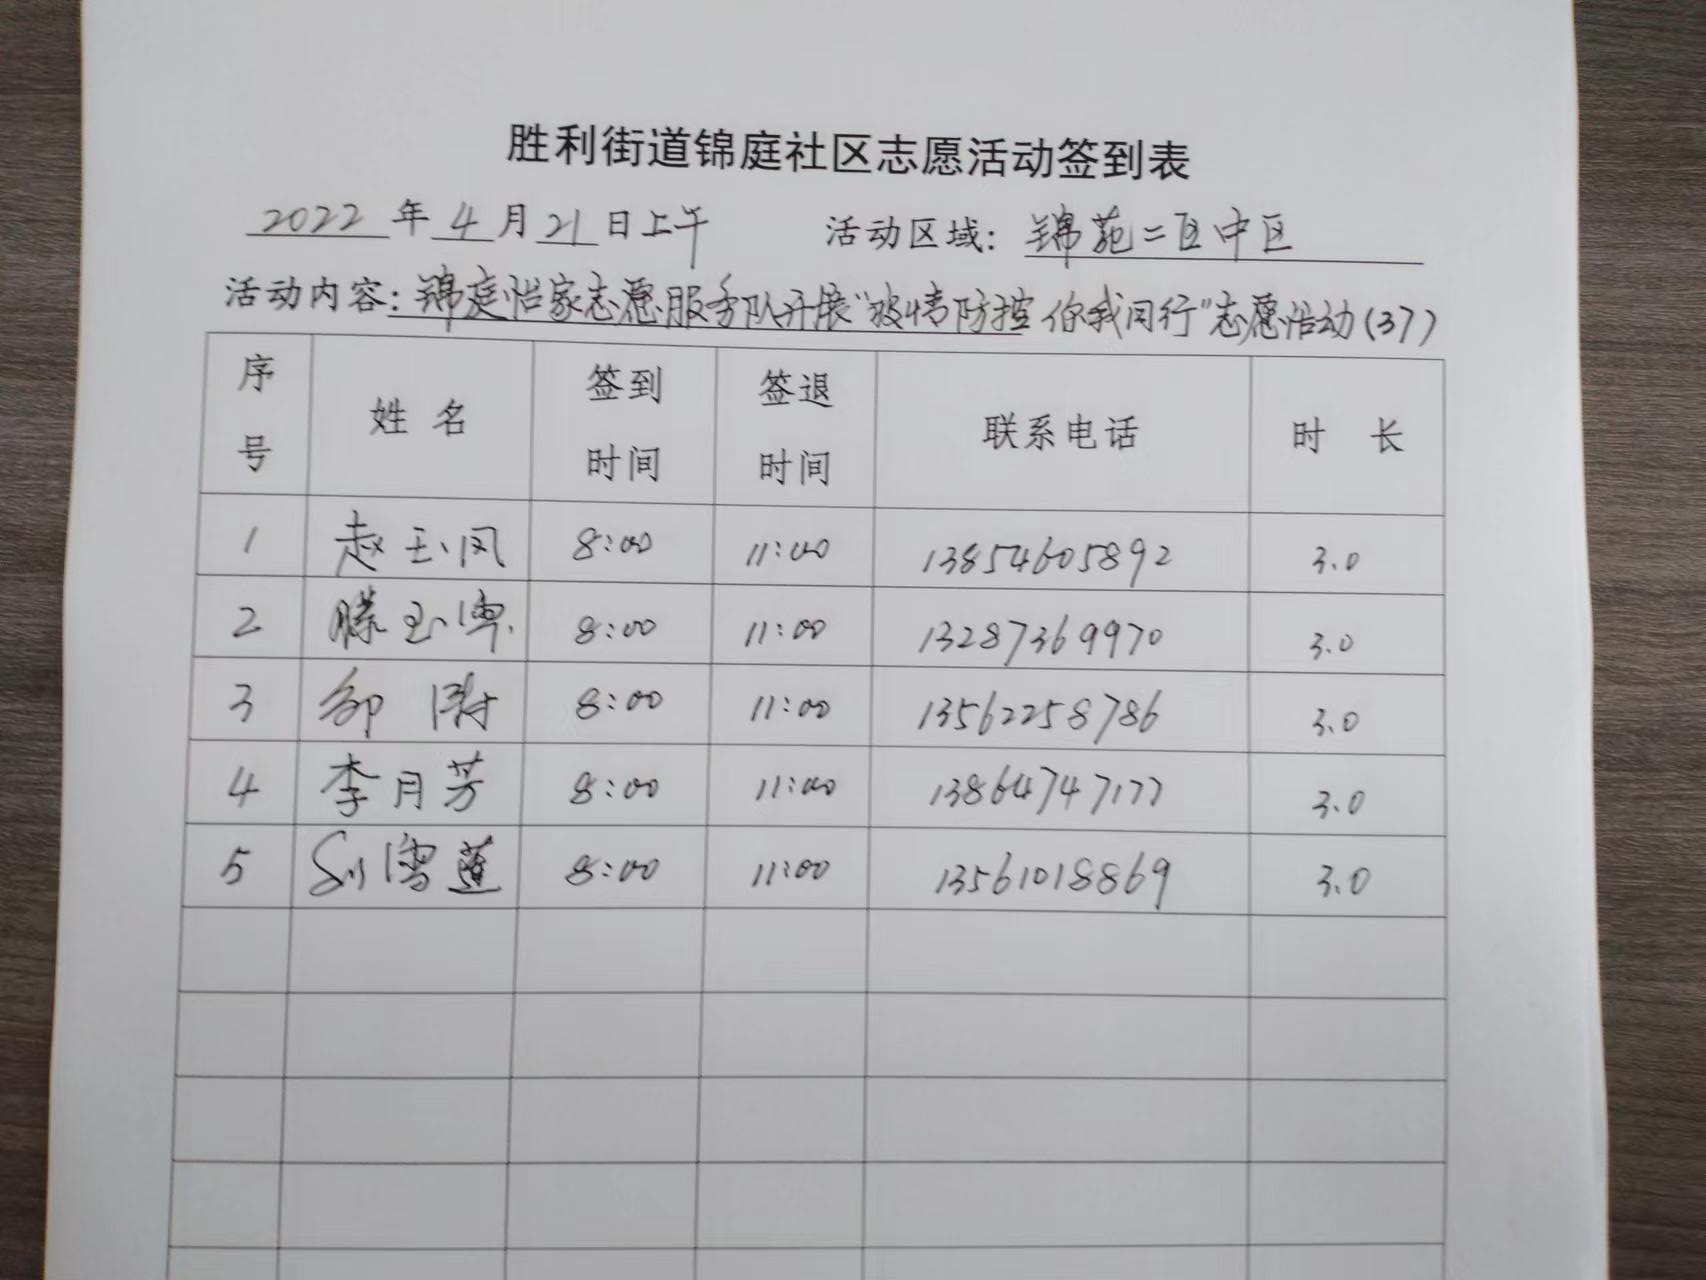 胜利街道锦庭社区志愿活动签到表
2022年4月21日上午 活动区域：锦苑二区中区
活动内容：锦庭怡家志愿服务队开展“疫情防控 你我同行”志愿活动(37)
序号 姓名 签到时间 签退时间 联系电话 时长
1 赵玉凤 8:00 11:00 13854605892 3.0
2 滕玉 8:00 11:00 13287369970 3.0
3 邹 8:00 11:00 13562258786 3.0
4 李月芳 8:00 11:00 13864747177 3.0
5 刘雪莲 8:00 11:00 13561018869 3.0